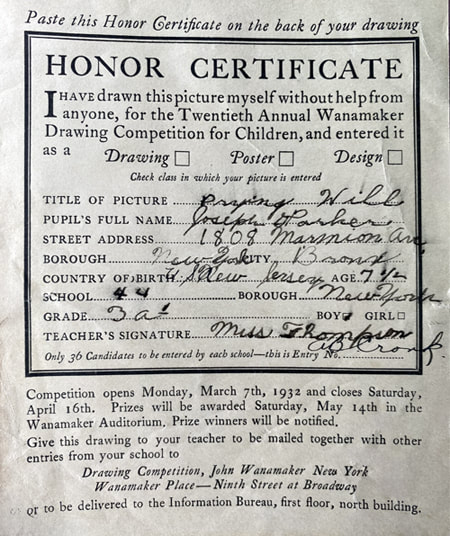 Paste this Honor Certificate on the back of your drawing
HONOR CERTIFICATE
I HAVE drawn this picture myself without help from
anyone, for the Twentieth Annual Wanamaker
Drawing Competition for Children, and entered it
as a Drawing □ Poster □ Design □
Check class in which your picture is entered
TITLE OF PICTURE prying Will
PUPIL'S FULL NAME Joseph Parker
STREET ADDRESS 1808 Marmion Av.
BOROUGH New York CITY Bronx
COUNTRY OF BIRTH U.S New Jersey AGE 7 1/2
SCHOOL 44 BOROUGH New York
GRADE 3a BOY GIRL □
TEACHER'S SIGNATURE Miss Thompson
Only 36 Candidates to be entered by each school—this is Entry No.
Competition opens Monday, March 7th, 1932 and closes Saturday,
April 16th. Prizes will be awarded Saturday, May 14th in the
Wanamaker Auditorium. Prize winners will be notified.
Give this drawing to your teacher to be mailed together with other
entries from your school to
Drawing Competition, John Wanamaker New York
Wanamaker Place—Ninth Street at Broadway
or to be delivered to the Information Bureau, first floor, north building.